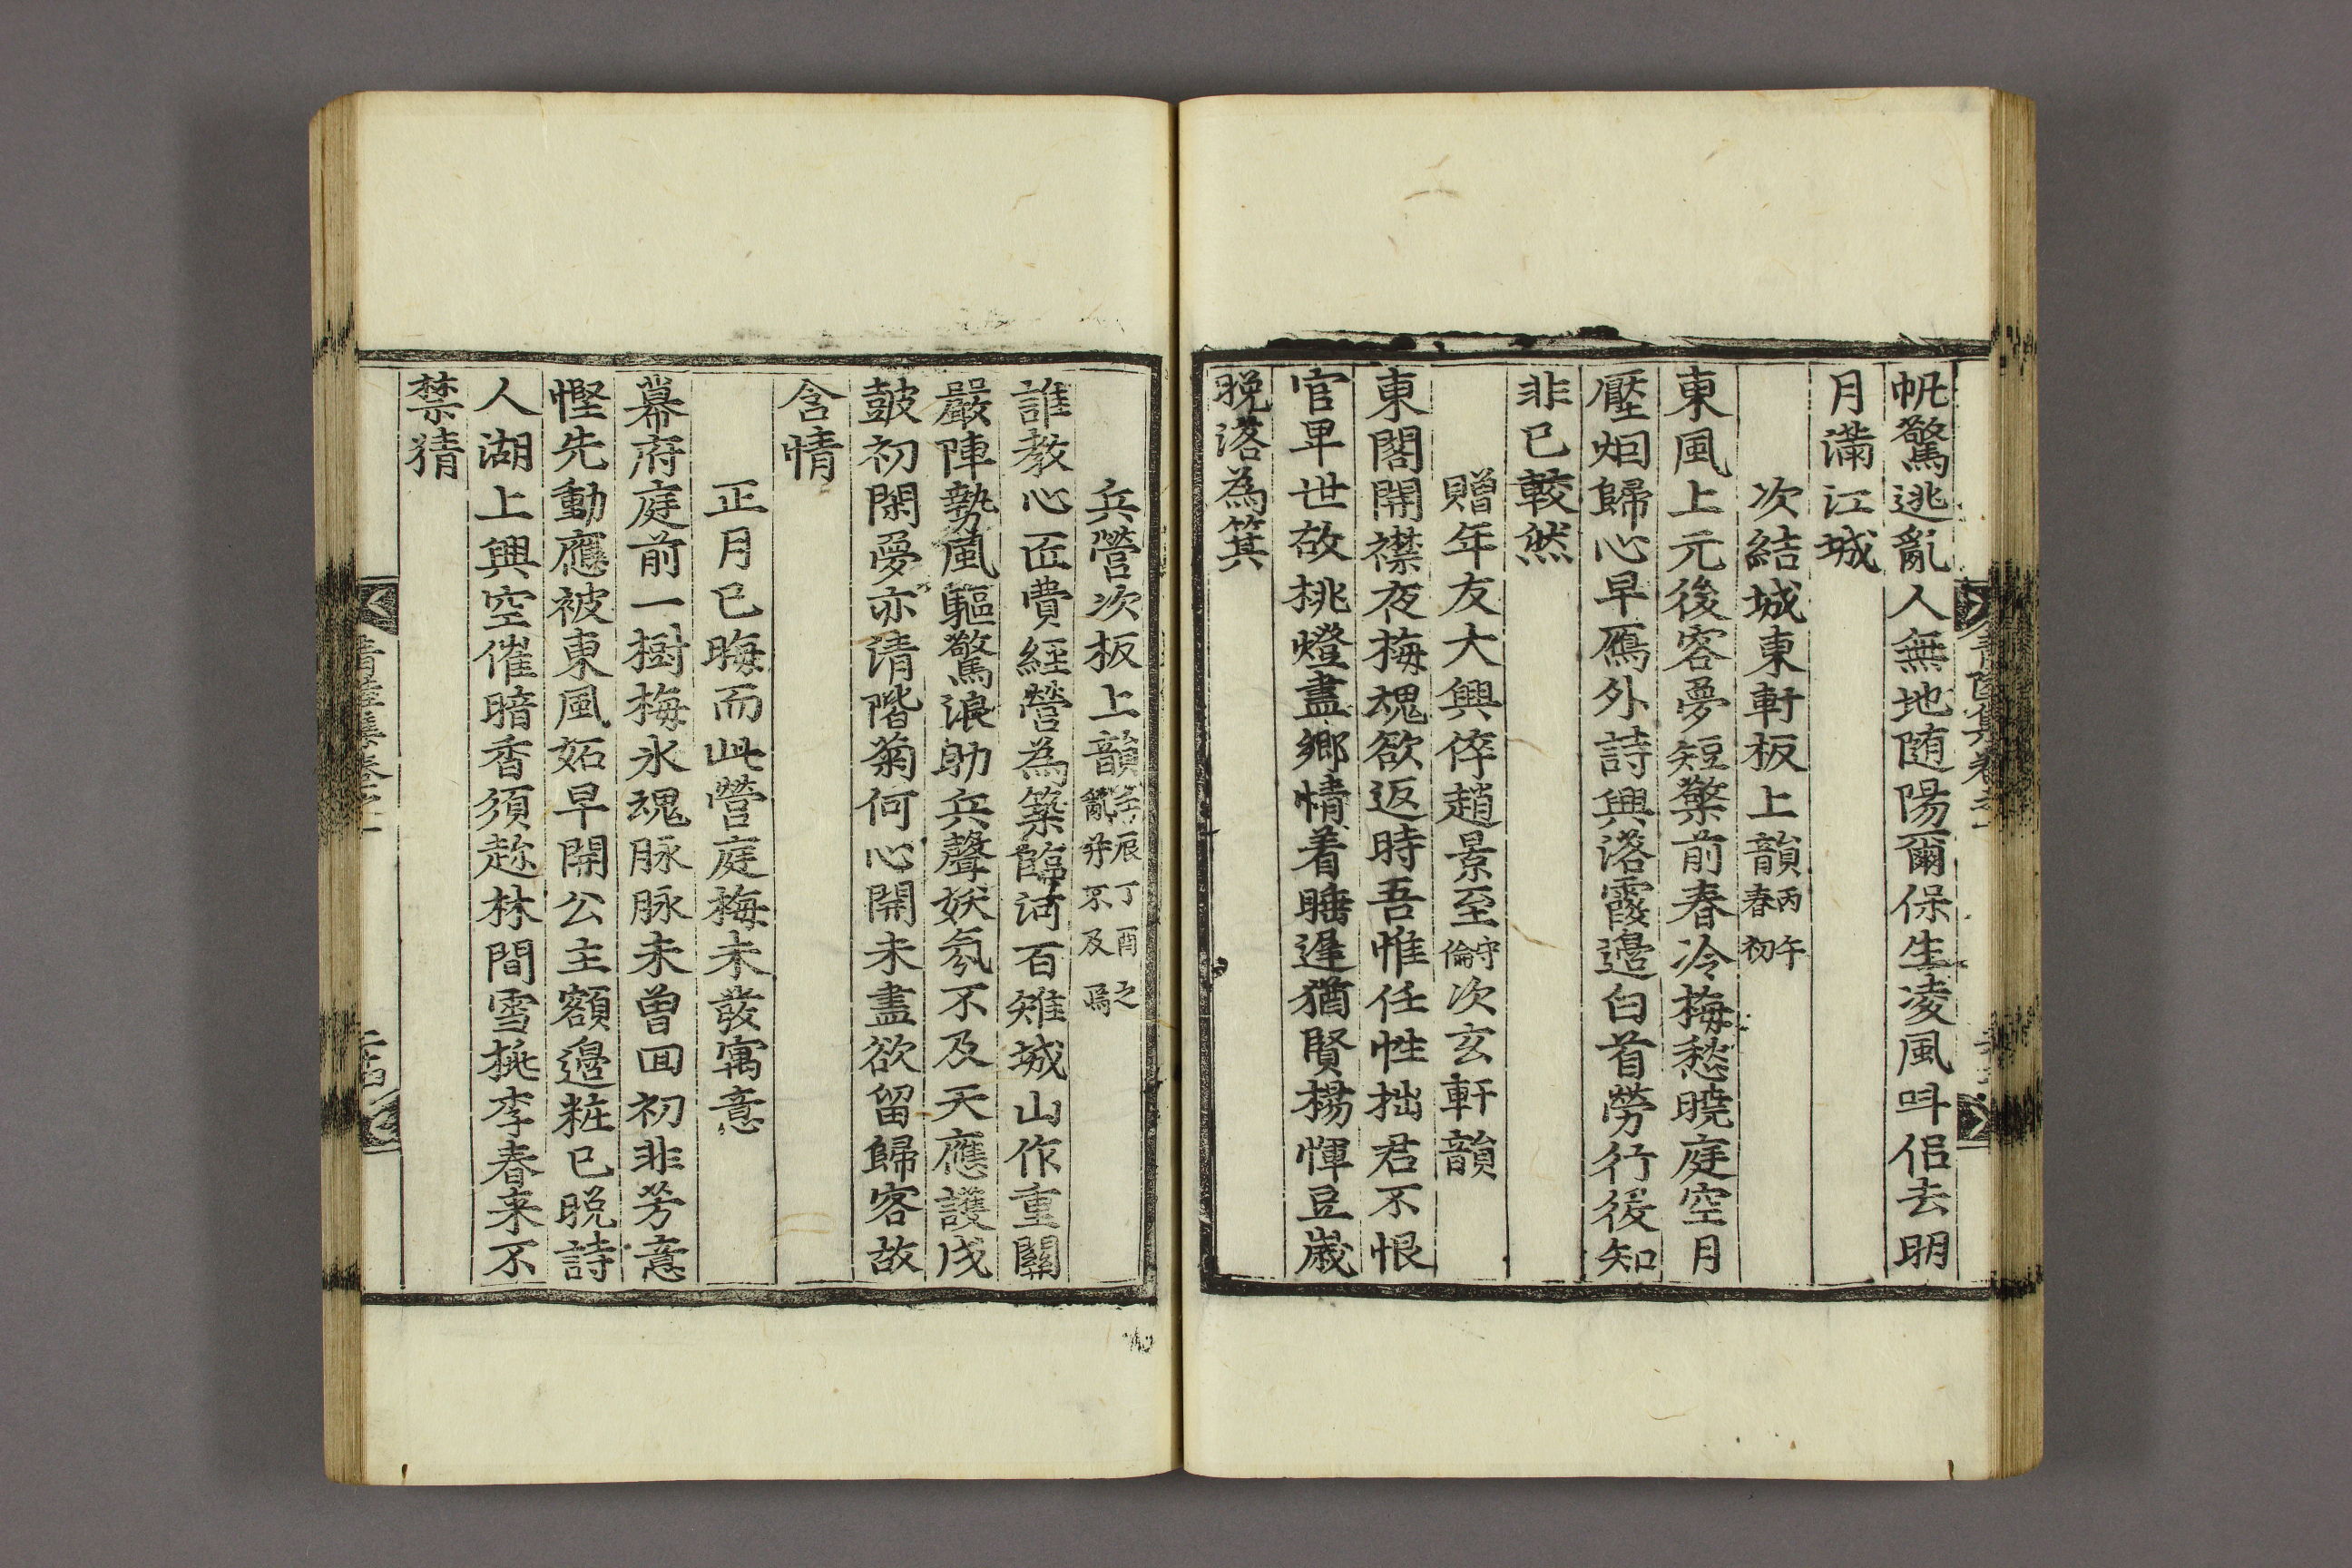 帆驚逃亂人無地随陽爾保生凌風叫侶去明
月滿江城
次結城東軒板上韻丙午春初
東風上元後客夢短檠前春冷梅愁曉庭空月
壓烟歸心早鴈外詩興落霞邉白首勞行役知
非已較然
贈年友大興倅趙景至守倫次玄軒韻
東閣開襟夜梅魂欲返時吾惟任性拙君不恨
官卑世故挑燈盡鄉情着睡遅猶賢楊惲豆歲
晚落為箕
兵營次板上韻壬辰丁酉之亂并不及焉
誰教心匠費經營為築臨河百雉城山作重關
嚴陣勢風驅驚浪助兵聲妖氛不及天應護戍
鼓初閑夢亦清階菊何心開未盡欲留歸客故
含情
正月已晦而此營庭梅未發寓意
幕府庭前一樹梅氷魂脉脉未曾回初非芳意
慳先動應被東風妬早開公主額邉粧已晚詩
人湖上興空催暗香須趂林間雪挑李春来不
禁猜